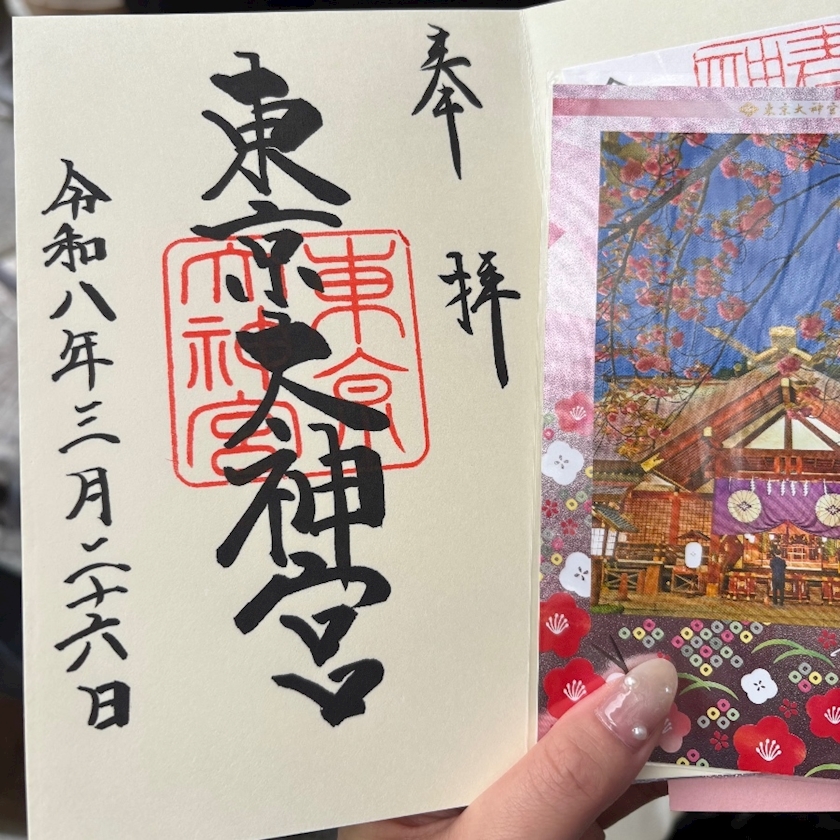 奉拝
東京大神宮
東京
大神宮
令和八年三月二十六日
東京大神宮